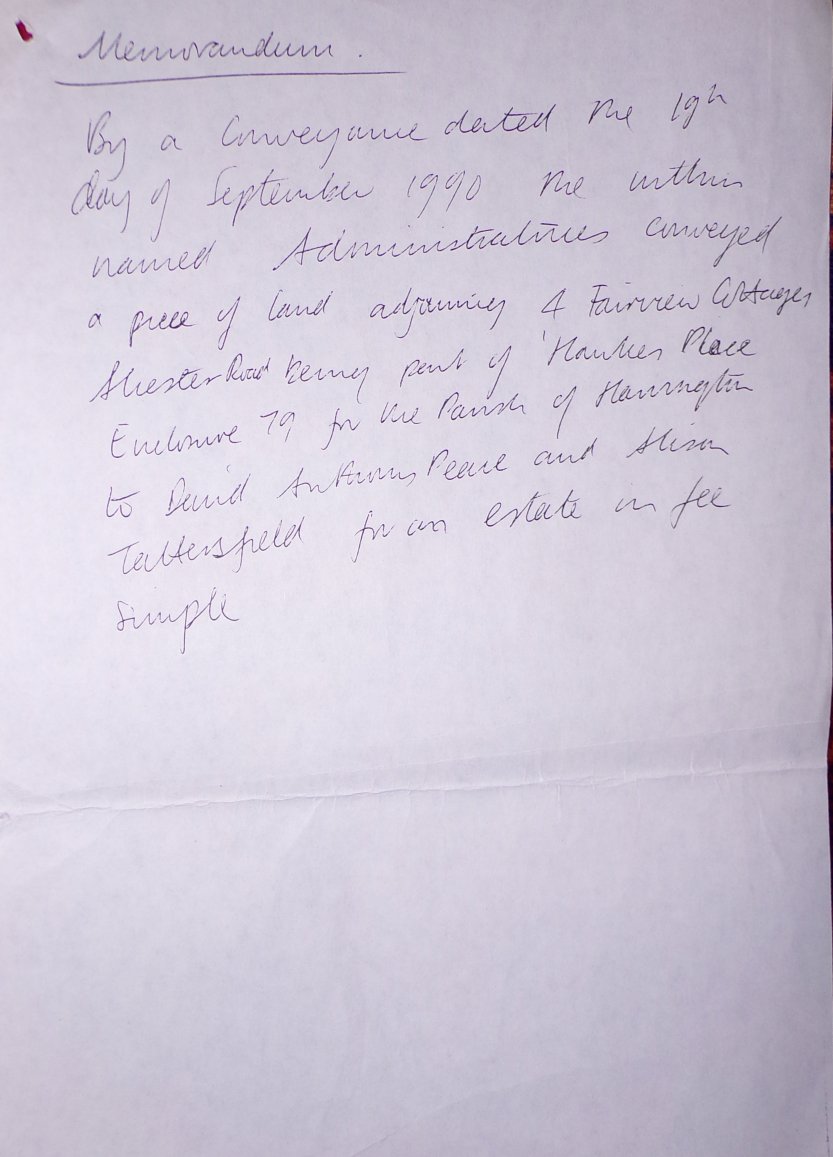 Memorandum.
By a Conveyance dated the 19th
day of September 1990 the within
named Administratrices conveyed
a piece of land adjoining 4 Fairview Cottages
Alcester Road being part of 'Hawkes Place
Enclosure 79 for the Parish of Hannington
to David Anthony Pearce and Alison
Tattersfield for an estate in fee
simple